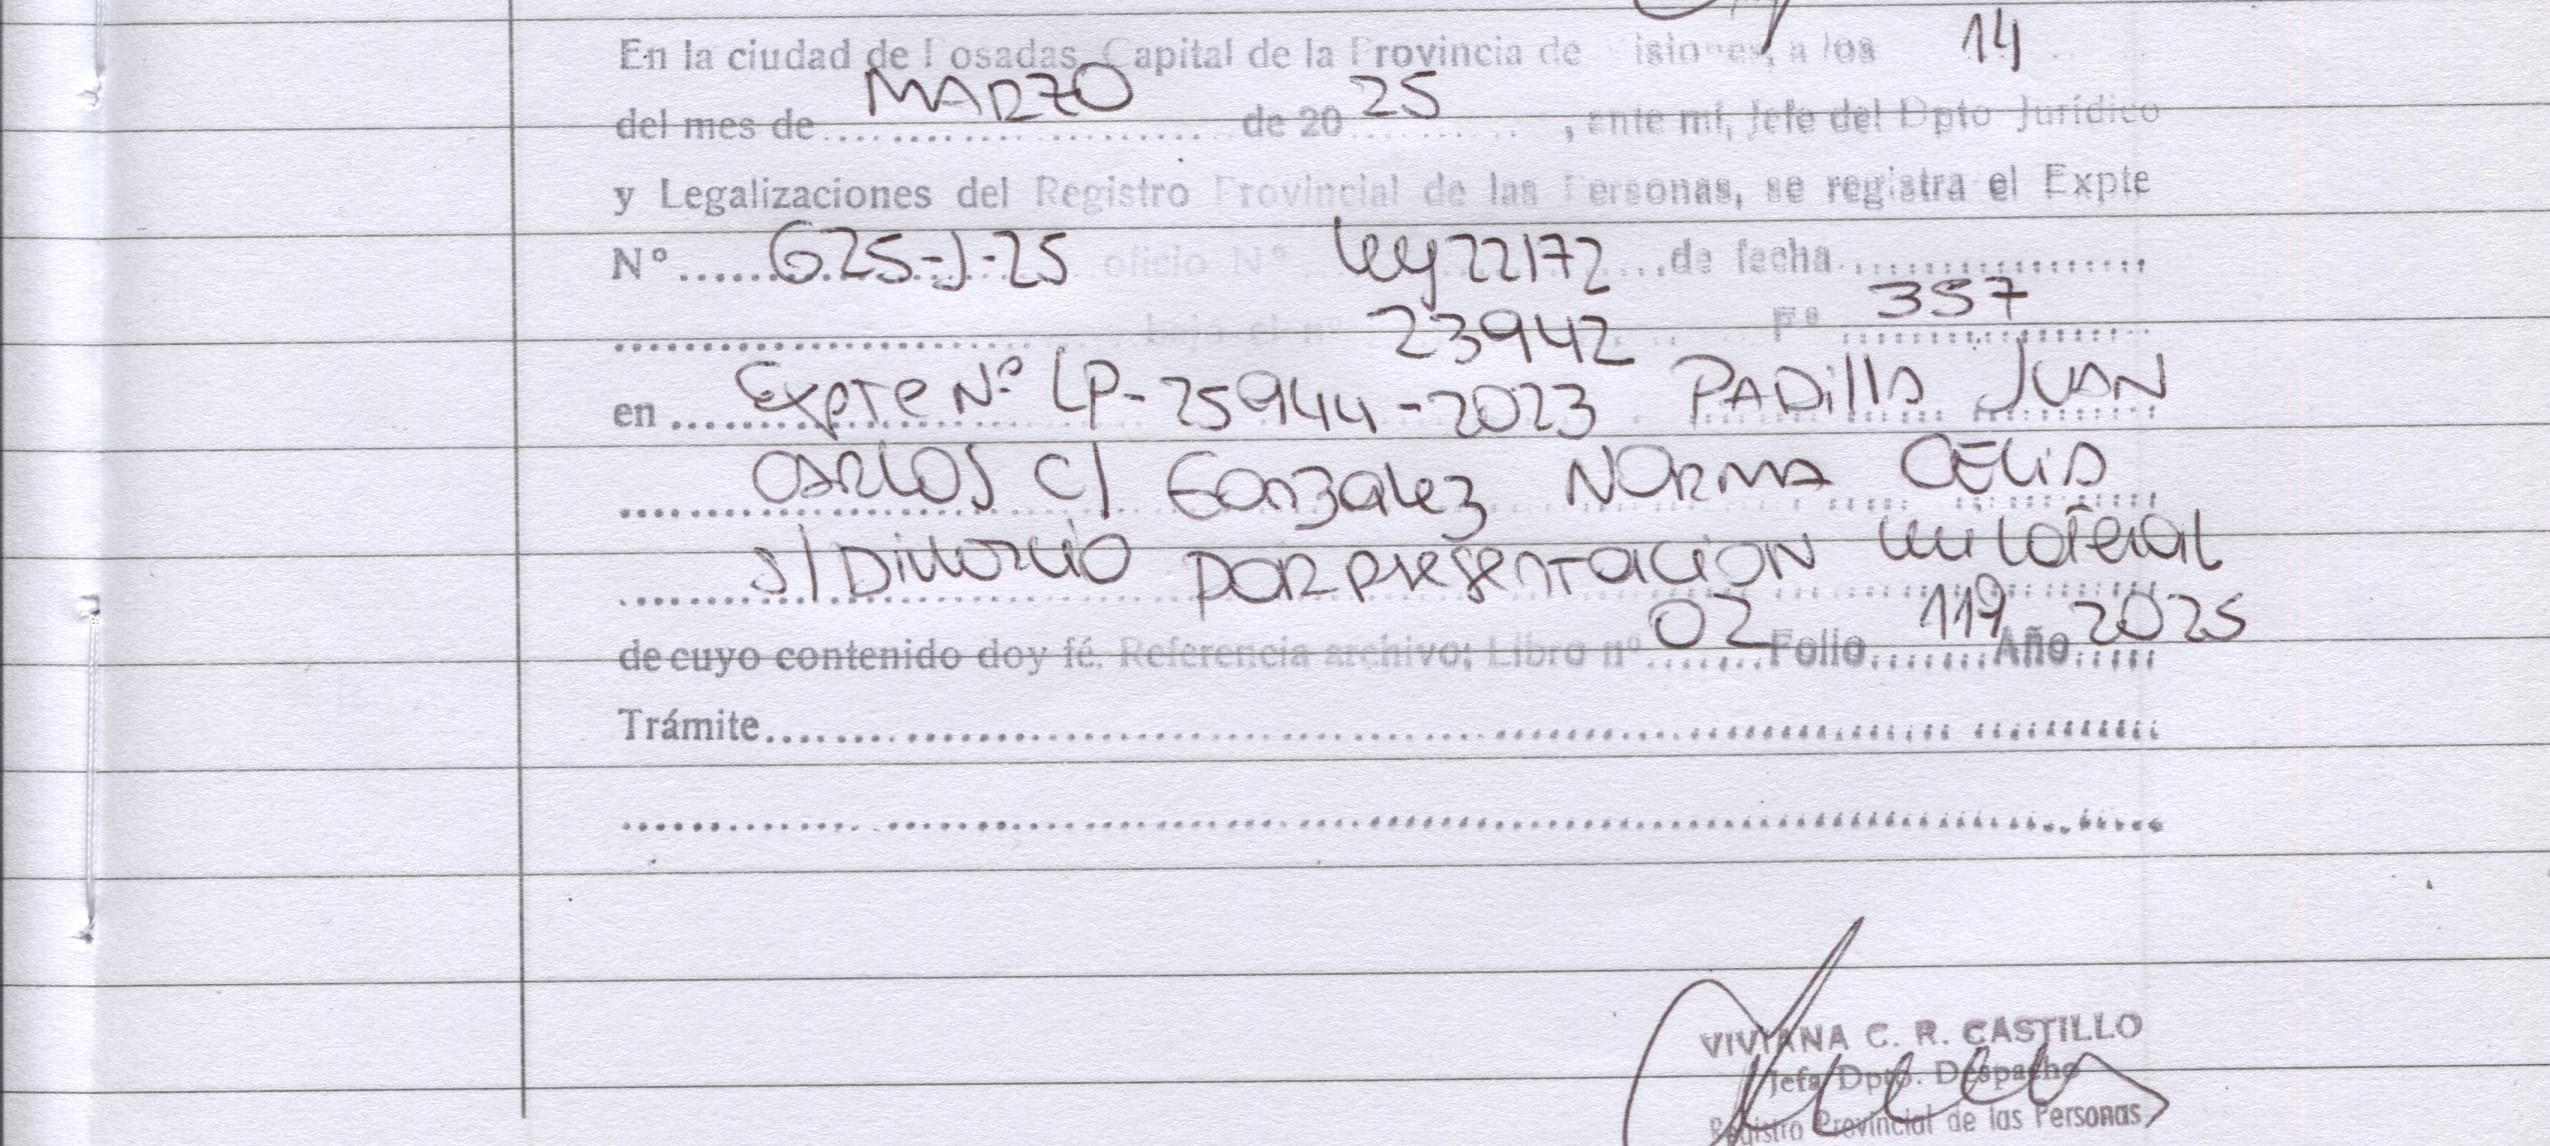 En la ciudad de Posadas, Capital de la Provincia de Misiones, a los 14
del mes de MARZO de 20 25, ante mí, Jefe del Dpto Jurídico
y Legalizaciones del Registro Provincial de las Personas, se registra el Expte
Nº 625-J-25 oficio Nº Ley 22172 de fecha
bajo el nº 23942 Fº 357
en Expte Nº LP-25944-2023 PADillA JUAN
CARLOS c/ Gonzalez NORMA CELiA
s/ Divorcio POR presentacion unilateral
de cuyo contenido doy fé. Referencia archivo; Libro nº 02 Folio 119 Año 2025
Trámite
VIVIANA C. R. CASTILLO
Jefa Dpto. Despacho
Registro Provincial de las Personas